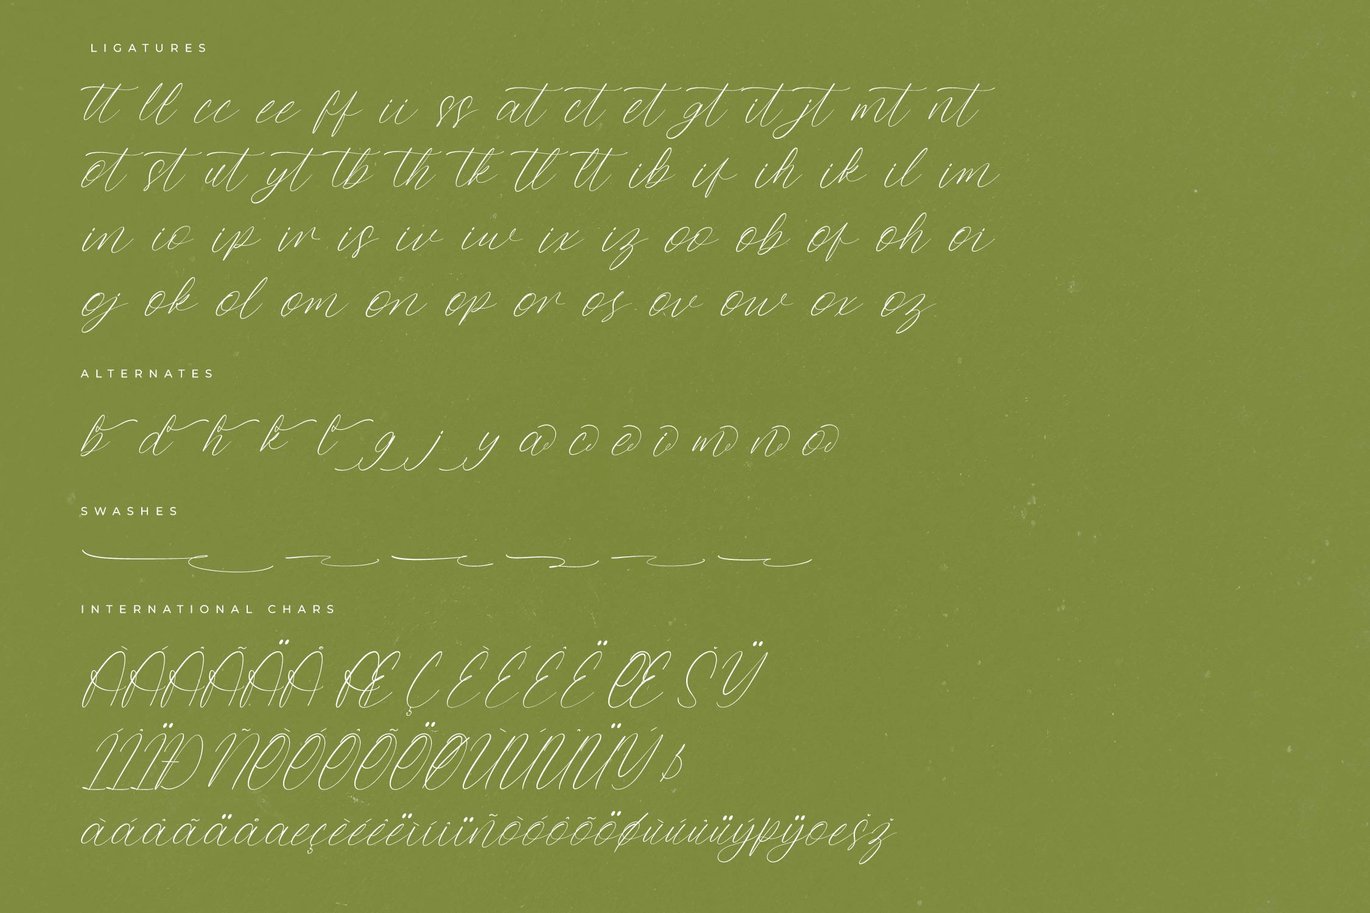 LIGATURES
tt ll cc ee ff ii ss at ct et gt it jt mt nt
ot st ut yt tb th tk tl lt ib if ih ik il im
in io ip ir is iv iw ix iz oo ob of oh oi
oj ok ol om on op or os ov ow ox oz
ALTERNATES
b d h k t g j y a c e i m n o
SWASHES
INTERNATIONAL CHARS
ÀÁÂÃÄÅ Æ Ç È É Ê Ë Œ Š Ÿ
ÍÎÏÐ ÑÒÓÔÕÖØÙÚÛÜÝ
àáâãäåæçèéêëìíîïñòóôõöøùúûüýþÿœšž